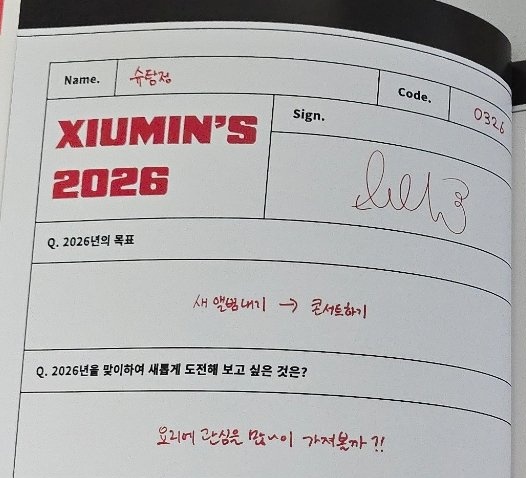 Name. 슈탐정
Code. 0326
XIUMIN'S
2026
Sign.
Q. 2026년의 목표
새 앨범내기 → 콘서트하기
Q. 2026년을 맞이하여 새롭게 도전해 보고 싶은 것은?
요리에 관심을 많이 가져볼까?!